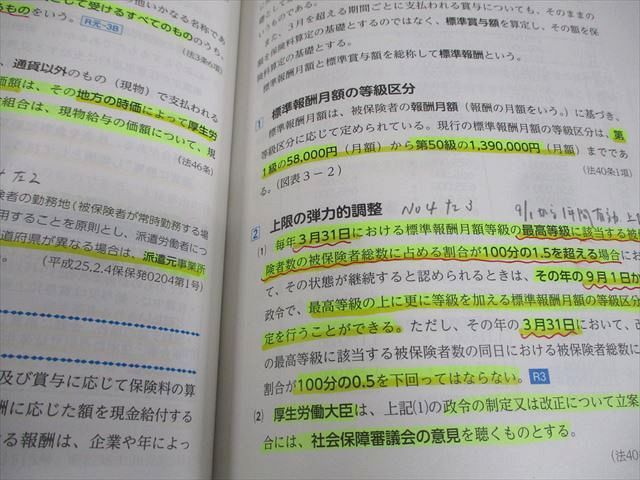 他いかなる名称であ
として受けるすべてのもののうち、
るものをいう。 R元-3B
(法3条6項)
通貨以外のもの（現物）で支払われる
価額は、その地方の時価によって厚生労
組合は、現物給与の価額について、規
(法46条)
左2
険者の勤務地(被保険者が常時勤務する場
用することを原則とし、派遣労働者につ
道府県が異なる場合は、派遣元事業所
(平成25.2.4保保発0204第1号)
及び賞与に応じて保険料の算
酬に応じた額を現金給付する
る報酬は、企業や年によっ
いうものである。
また、3月を超える期間ごとに支払われる賞与についても、そのままの
険料算定の基礎とするのではなく、標準賞与額を算定し、その額を保
険料算定の基礎とする。
標準報酬月額と標準賞与額を総称して標準報酬という。
標準報酬月額の等級区分
1 標準報酬月額は、被保険者の報酬月額（報酬の月額をいう。）に基づき、
等級区分に応じて定められている。現行の標準報酬月額の等級区分は、第
1級の58,000円（月額）から第50級の1,390,000円（月額）までであ
る。（図表3－2）
(法40条1項)
上限の弾力的調整 No4 左3 9/1から1年間有効
2
(1) 毎年3月31日における標準報酬月額等級の最高等級に該当する被
険者数の被保険者総数に占める割合が100分の1.5を超える場合にお
て、その状態が継続すると認められるときは、その年の9月1日か
政令で、最高等級の上に更に等級を加える標準報酬月額の等級区分
定を行うことができる。ただし、その年の3月31日において、改
の最高等級に該当する被保険者数の同日における被保険者総数に
割合が100分の0.5を下回ってはならない。 R3
(2) 厚生労働大臣は、上記(1)の政令の制定又は改正について立案
合には、社会保障審議会の意見を聴くものとする。
(法40